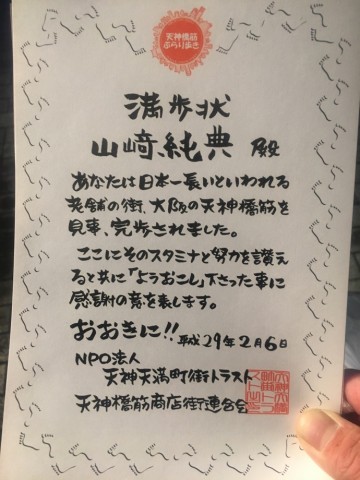 天神橋筋
ぶらり歩き
満歩状
山崎純典 殿
あなたは日本一長いといわれる
老舗の街、大阪の天神橋筋を
見事、完歩されました。
ここにそのスタミナと努力を讃え
ると共に「ようおこし」下さった事に
感謝の意を表します。
おおきに!! 平成29年2月6日
NPO法人
天神天満町街トラスト
天神橋筋商店街連合会